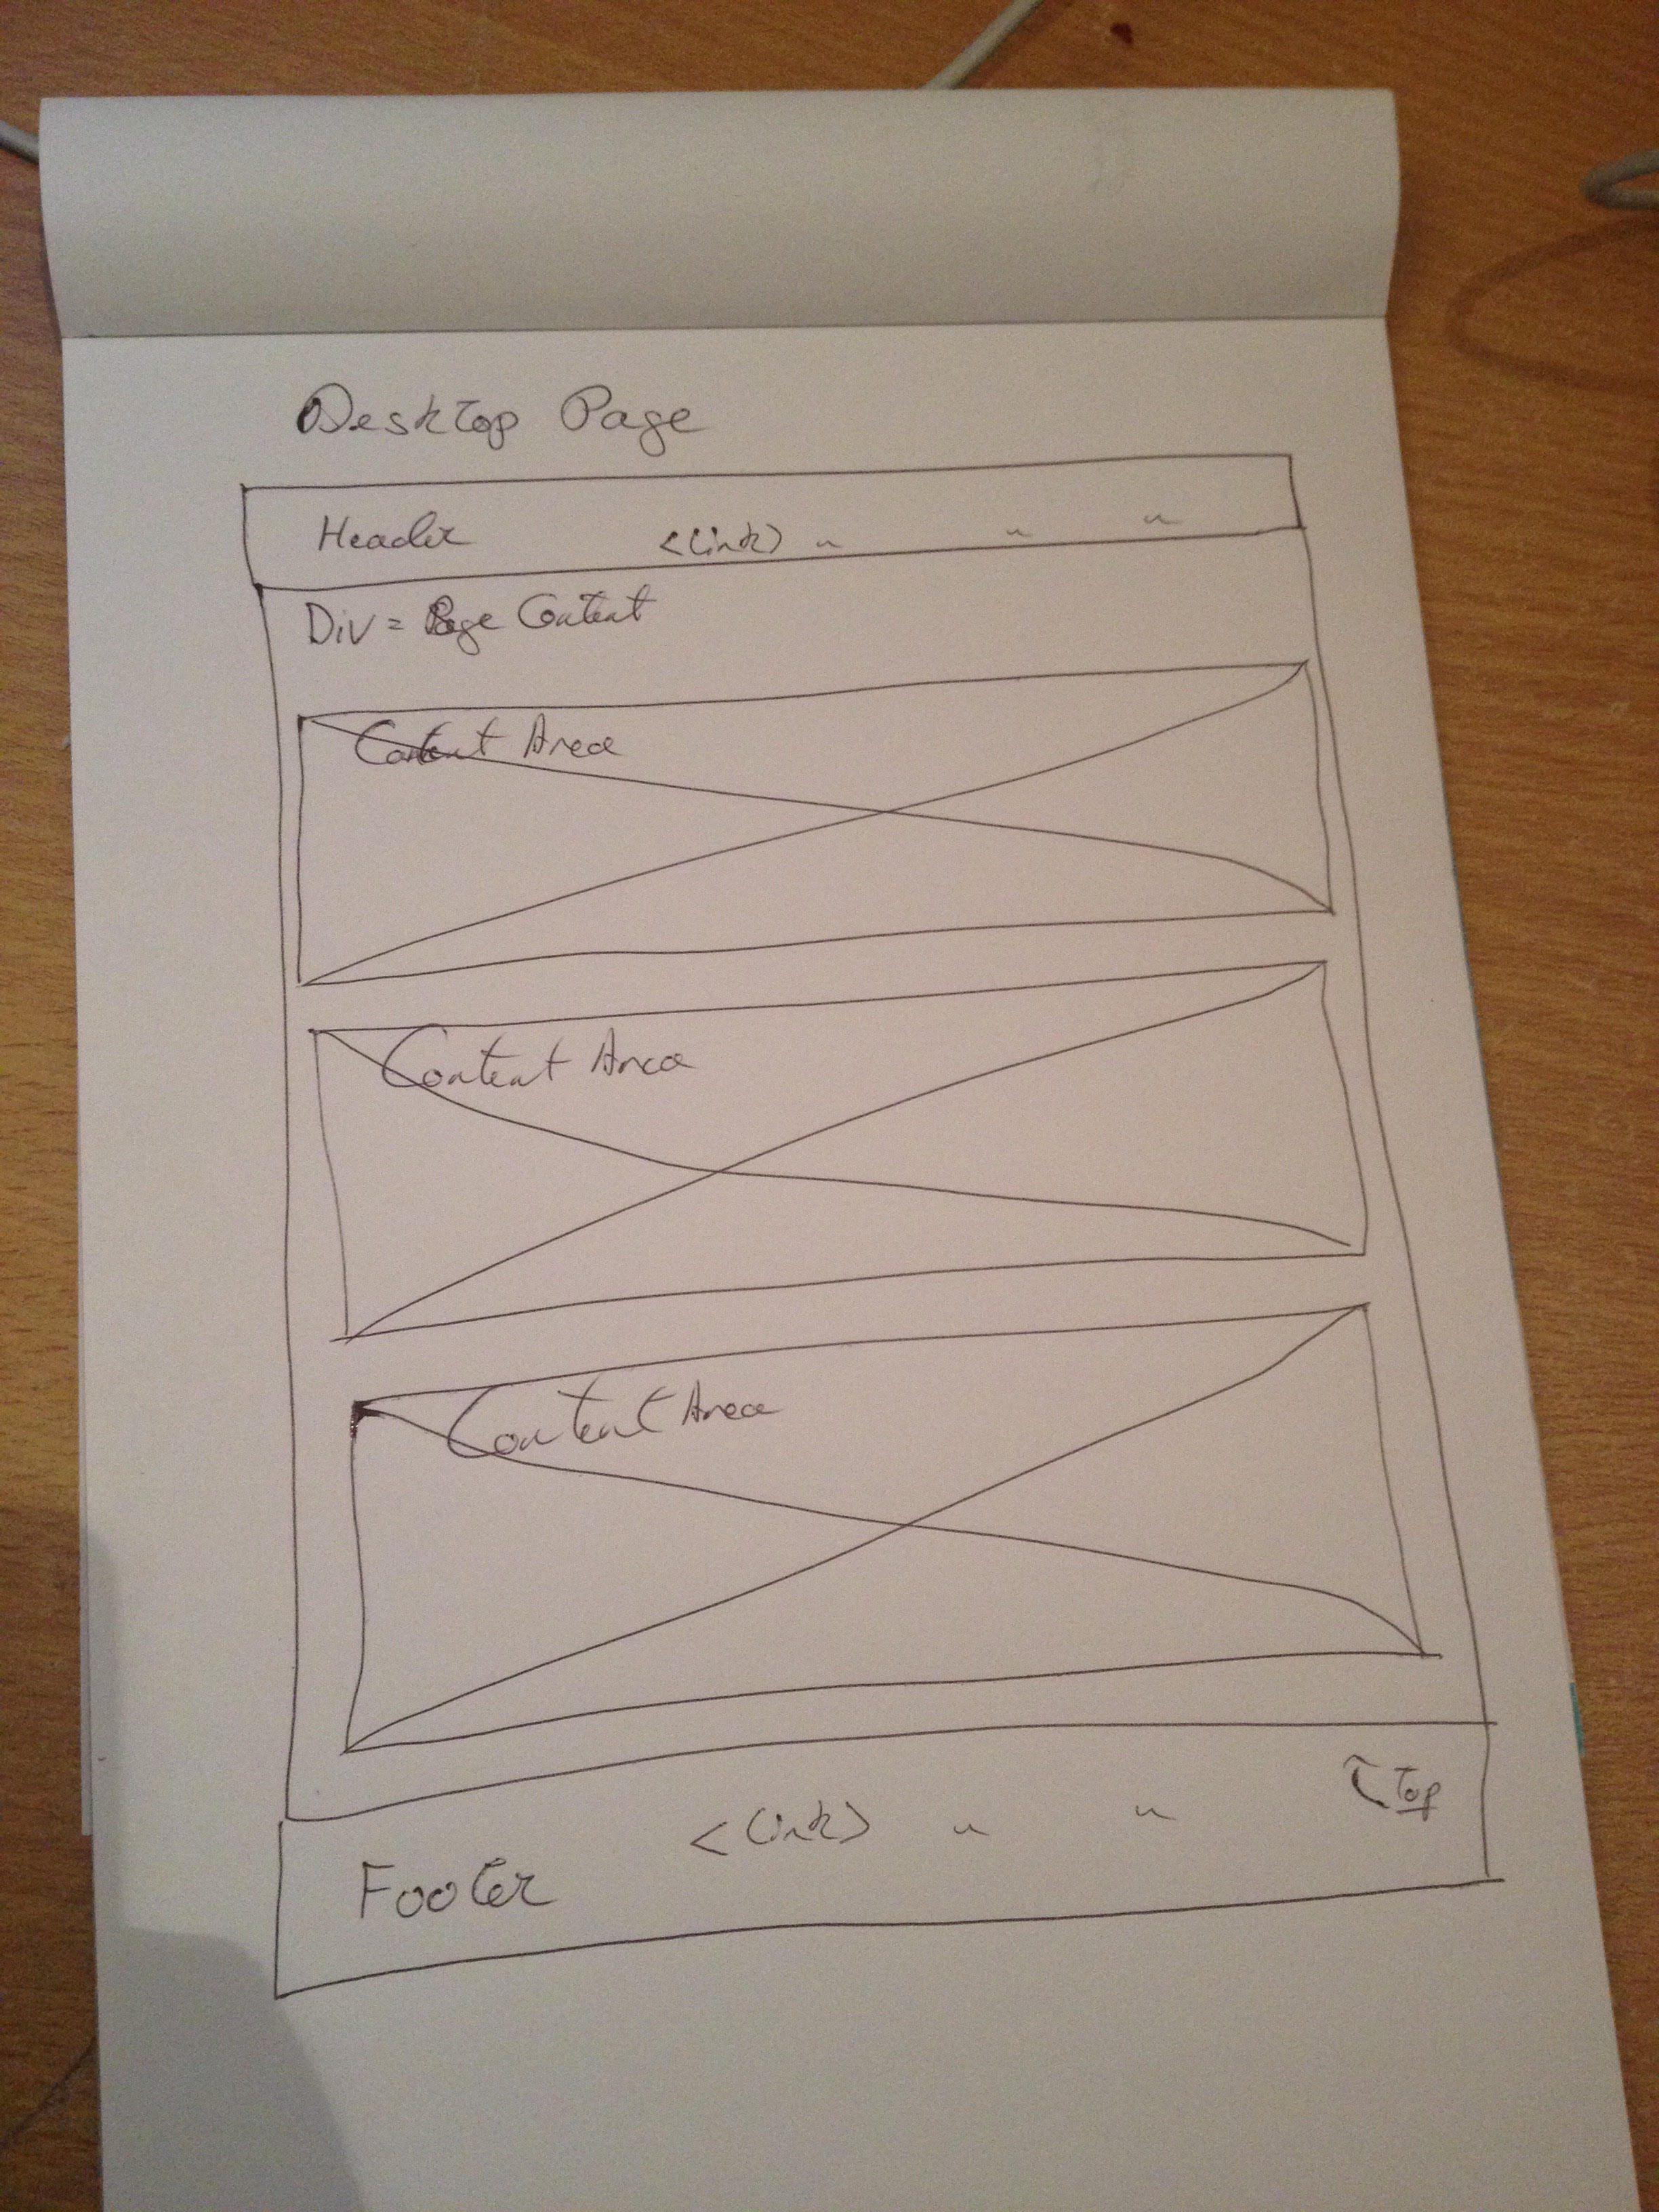 Desktop Page
Header <link> " " "
Div = Page Content
Content Area
Content Area
Content Area
<link> " " Top
Footer